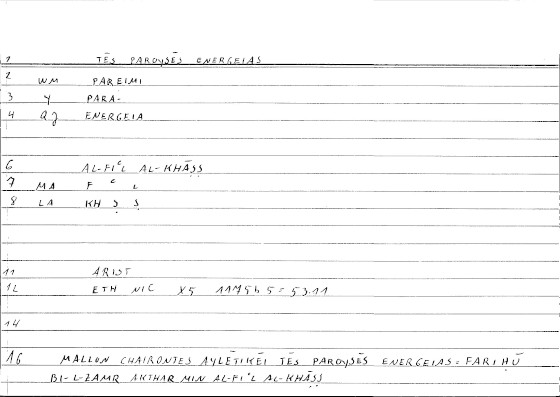 1 TĒS PAROYSĒS ENERGEIAS
2 WM PAREIMI
3 Y PARA-
4 QJ ENERGEIA
6 AL-FIʿL AL-KHĀṢṢ
7 MA F ʿ L
8 LA KH Ṣ Ṣ
11 ARIST
12 ETH NIC X5 1175b5 = 53.11
14
16 MALLON CHAIRONTES AYLĒTIKĒI TĒS PAROYSĒS ENERGEIAS = FARIḤŪ
BI-L-ZAMR AKTHAR MIN AL-FIʿL AL-KHĀṢṢ